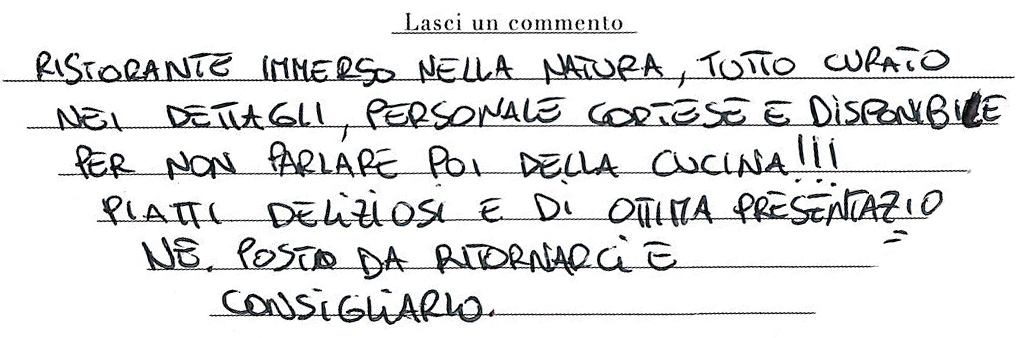 Lasci un commento
RISTORANTE IMMERSO NELLA NATURA, TUTTO CURATO
NEI DETTAGLI, PERSONALE CORTESE E DISPONIBILE
PER NON PARLARE POI DELLA CUCINA!!!
PIATTI DELIZIOSI E DI OTTIMA PRESENTAZIO
NE. POSTO DA RITORNARCI E
CONSIGLIARLO.